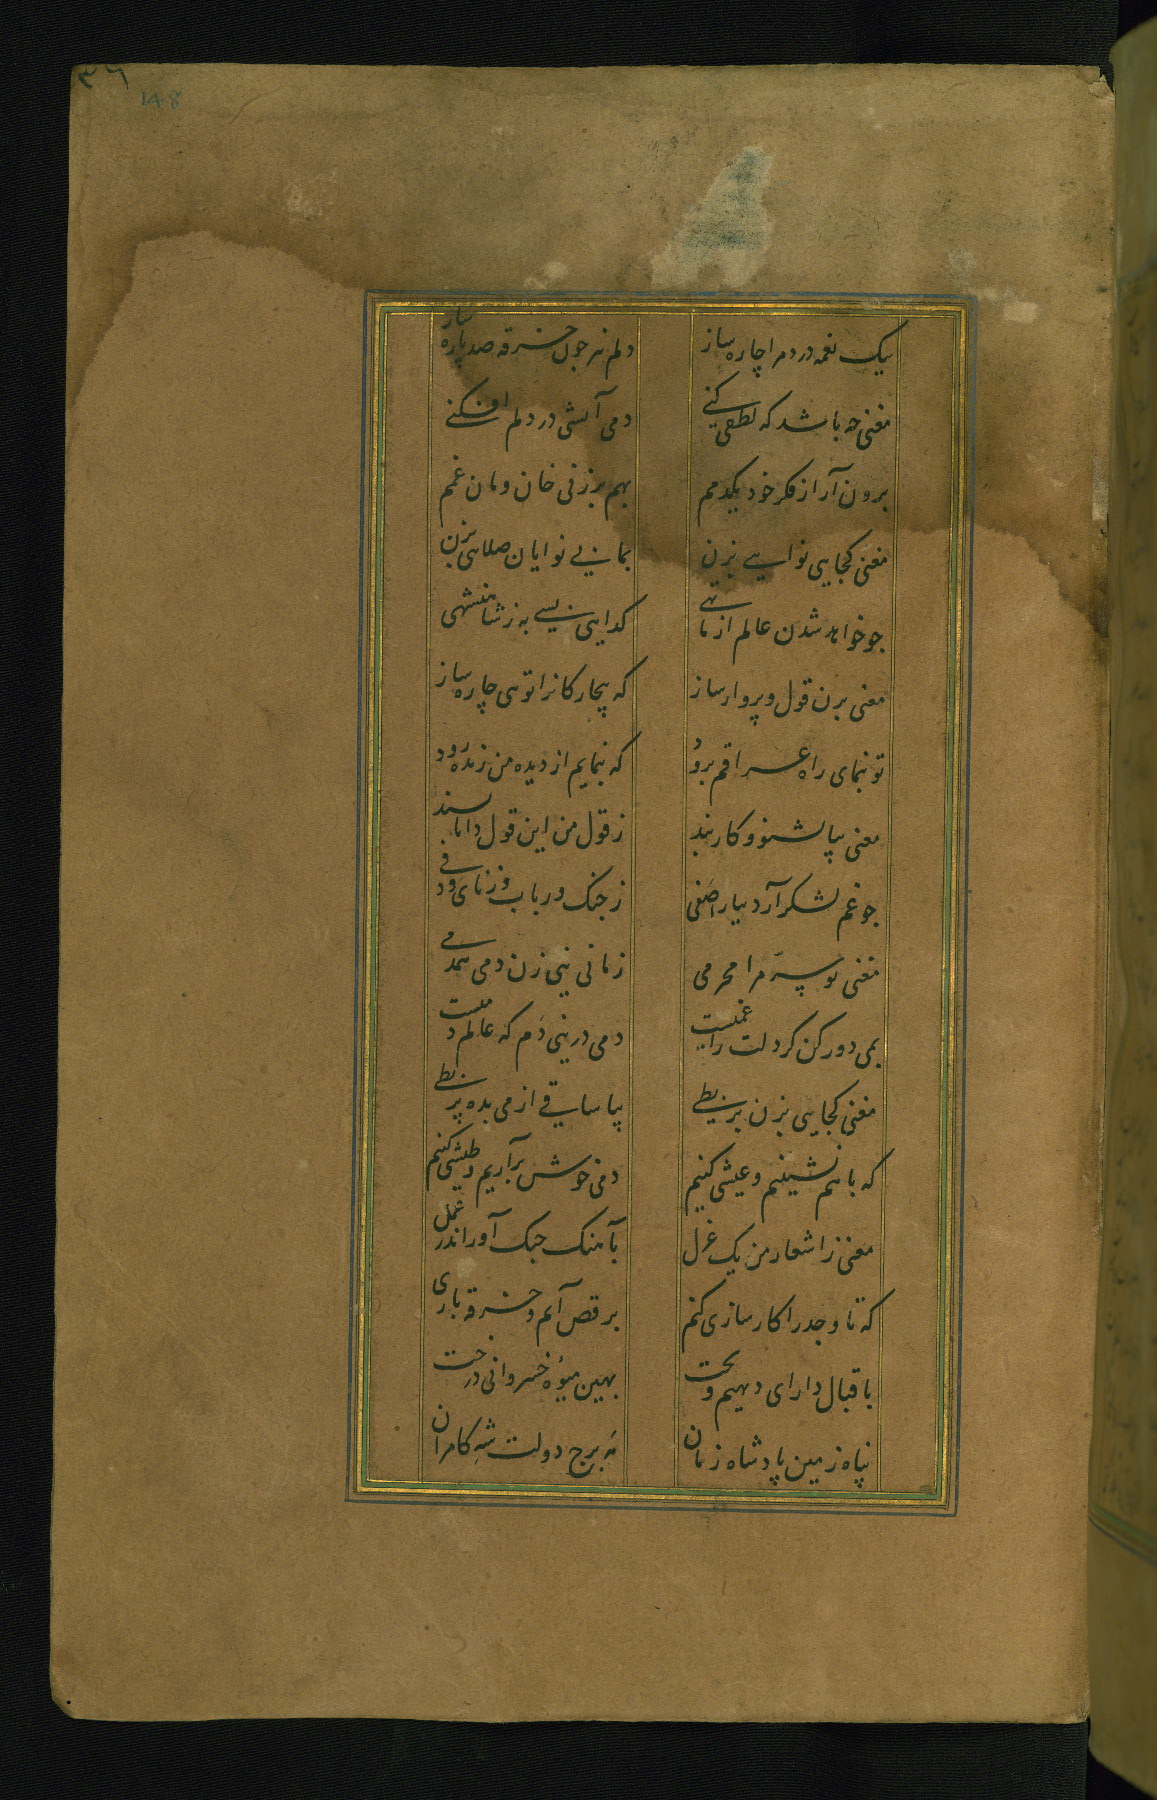 ۳۶
148
یک نغمه درد مرا چاره ساز
دلم نیز جون خرقه صد پاره ساز
مغنی چه باشد که لطفی کنی
دمی آتشی در دلم افکنی
برون آر از فکر خود یکدمم
بهم برزنی خان ومان غمم
مغنی کجایی نوایی بزن
بمانی بی نوایان صلایی بزن
جو خواهد شدن عالم از ما تهی
کدایی بسی به ز شاهنشهی
مغنی بزن قول و بردار ساز
که بیچارکانرا تویی چاره ساز
تو بنمای راه عراقم برود
که بنمایم از دیده من زنده رود
مغنی بیا بشنو و کار بند
ز قول من این قول دانا پسند
جو غم لشکر آرد بیارا صفی
ز جنک و رباب و ز نای و دفی
مغنی تو سر مرا محرمی
زمانی بنی زن دمی همدمی
بمی دور کن کر دلت را غمیست
دمی در نیی دم که عالم دمیست
مغنی کجایی بزن بربطی
بیا ساقی از می بده بر بطی
که با هم نشینیم و عیشی کنیم
دمی خوش برآریم و طیشی کنیم
مغنی ز اشعار من یک غزل
بآهنک جنک آور اندر عمل
که تا وجد را کارسازی کنم
برقص آیم و خرقه بازی
باقبال دارای دیهیم و تخت
بهین میوهٔ خسروانی درخت
پناه زمین پادشاه زمان
مه برج دولت شه کامران